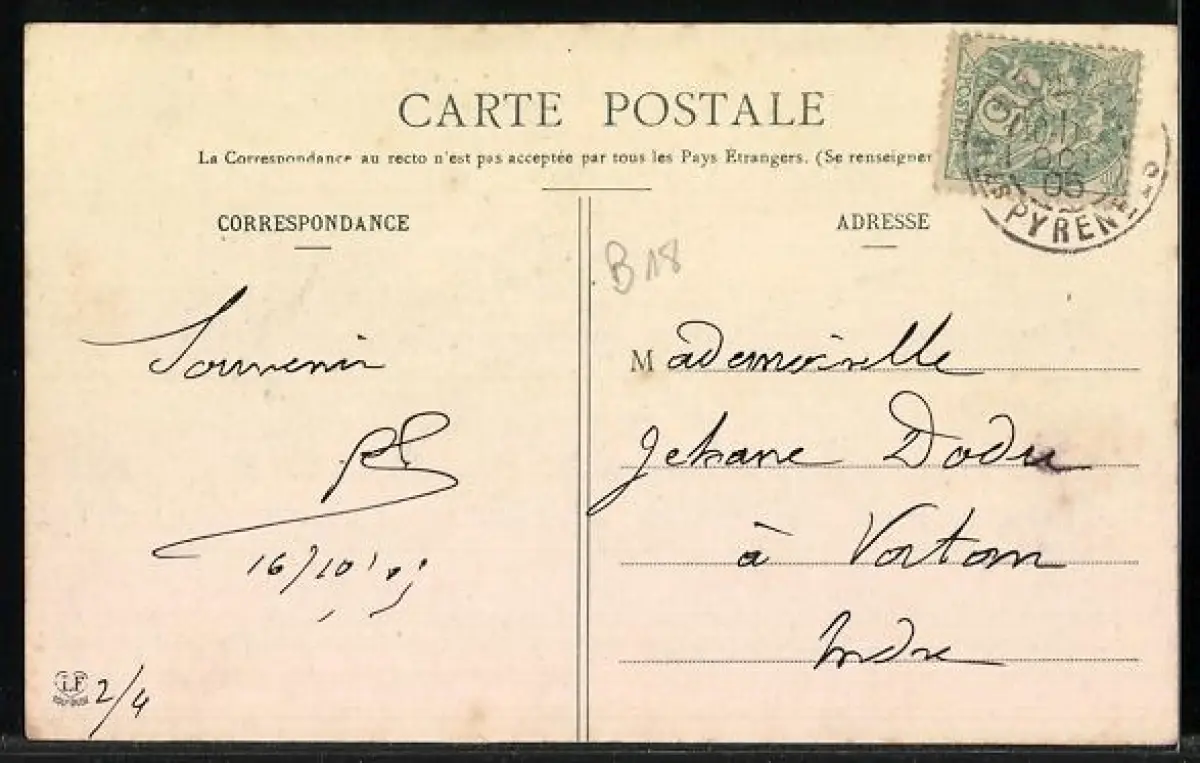 CARTE POSTALE
La Correspondance au recto n'est pas acceptée par tous les Pays Étrangers. (Se renseigner
CORRESPONDANCE
ADRESSE
B18
Souvenir
16/10/05
2/4
LF
Mademoiselle
Jehane Dodu
à Vatan
Indre
POSTES
OCT
05
PYRENE